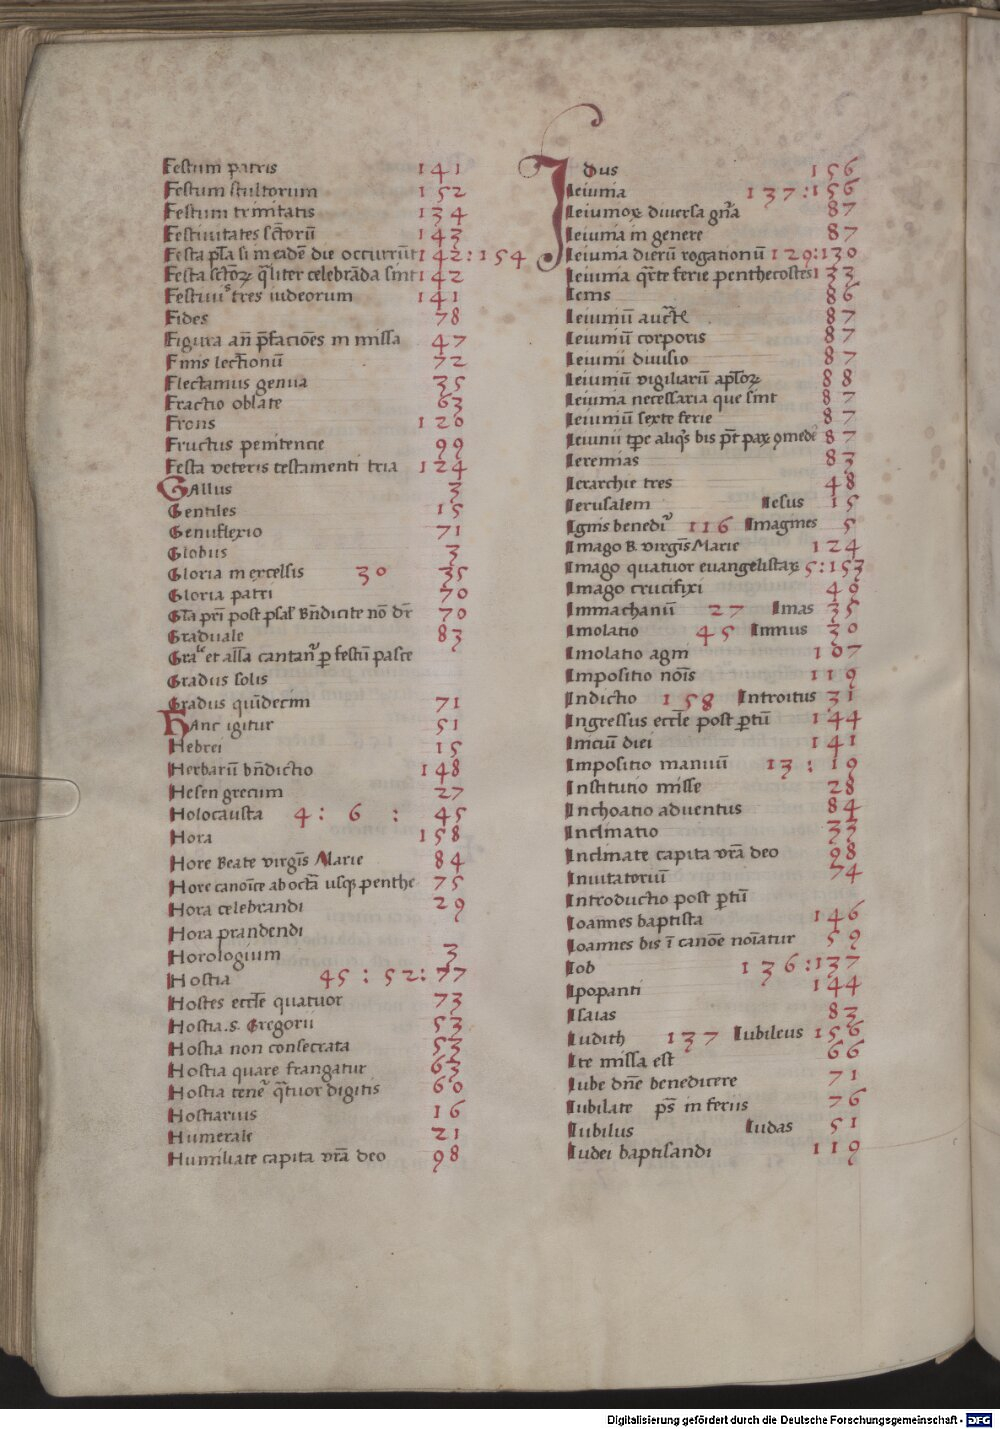 Festum patris 141
Festum stultorum 152
Festum trinitatis 134
Festiuitates sctorū 143
Festa pła si in eadē die occurrūt 142:154
Festa sctoꝝ qłiter celebrāda sint 142
Festiuis tres iudeorum 141
Fides 78
Figura añ p̄faciōes in missa 47
Finis lectionū 72
Flectamus genua 35
Fractio oblate 63
Frons 120
Fructus penitencie 99
Festa veteris testamenti tria 124
Gallus 3
Gentiles 15
Genuflexio 71
Globus 3
Gloria in excelsis 30 35
Gloria patri 70
Gła pr̄i post psal Bñdicite nō dr̄ 70
Graduale 83
Grale et ałła cantanr̄ p festū pasce
Gradus solis
Gradus quīdecim 71
Hanc igitur 51
Hebrei 15
Herbarū bñdictio 148
Hesen grecum 27
Holocausta 4: 6 : 45
Hora 158
Hore Beate virgīs Marie 84
Hore canoīce ab octā usqꝫ penthe 75
Hora celebrandi 29
Hora prandendi
Horologium 3
Hostia 45 : 52: 77
Hostes eccłe quatuor 73
Hostia .S. Gregorii 53
Hostia non consecrata 53
Hostia quare frangatur 63
Hostia tenēr qtuor digitis 60
Hostiarius 16
Humerale 21
Humiliate capita vrā deo 98
Idus 156
Ieiunia 137:156
Ieiunioꝝ diuersa gñā 87
Ieiunia in genere 87
Ieiunia dierū rogationū 129:130
Ieiunia qrte ferie penthecostes 133
Iems 86
Ieiuniū auctē 87
Ieiuniū corporis 87
Ieiunii diuisio 87
Ieiuniū vigiliarū apłoꝝ 88
Ieiunia necessaria que sint 87
Ieiuniū sexte ferie 87
Ieiunii tpe aliqs bis pt̄ pax ꝯmedē 87
Ieremias 83
Ierarchie tres 48
Ierusalem Iesus 15
Ignis benedir̄ 116 Imagines 5
Imago B. virgīs Marie 124
Imago quatuor euangelistaꝝ 5:153
Imago crucifixi 49
Immachanū 27 Imas 35
Imolatio 45 Imnus 30
Imolatio agni 107
Impositio noīs 119
Indictio 158 Introitus 31
Ingressus eccłe post ptū 144
Iniciū diei 141
Impositio manuū 13 : 19
Institutio misse 28
Inchoatio aduentus 84
Inclinatio 33
Inclinate capita vrā deo 98
Inuitatoriū 74
Introductio post ptū
Ioannes baptista 146
Ioannes bis ī canōe noīatur 59
Iob 136:137
Ipopanti 144
Isaias 83
Iudith 137 Iubileus 156
Ite missa est 66
Iube dn̄e benedicere 71
Iubilate ps̄ in feriis 76
Iubilus Iudas 51
Iudei baptisandi 119
Digitalisierung gefördert durch die Deutsche Forschungsgemeinschaft - DFG